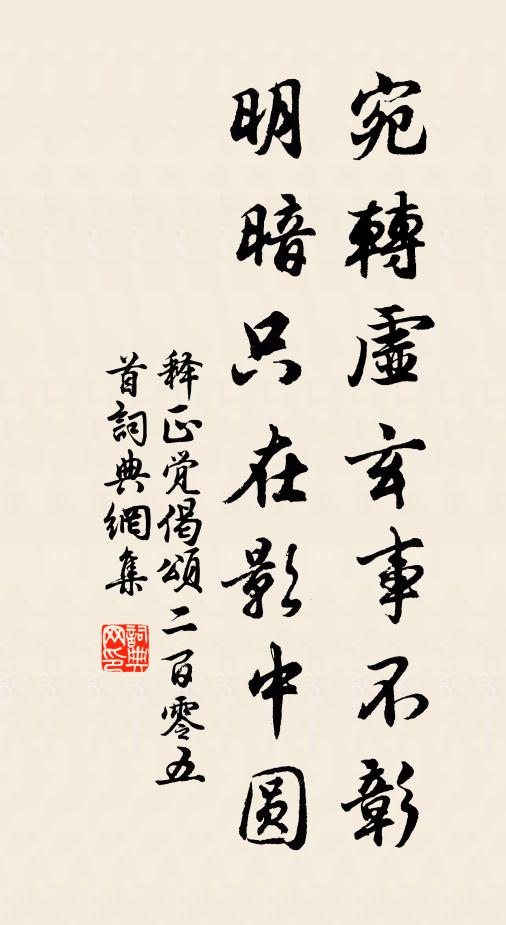 宛轉虛玄事不彰
明暗只在影中圆
释正觉偈頌二百零五
首詞典網集
詞典网印